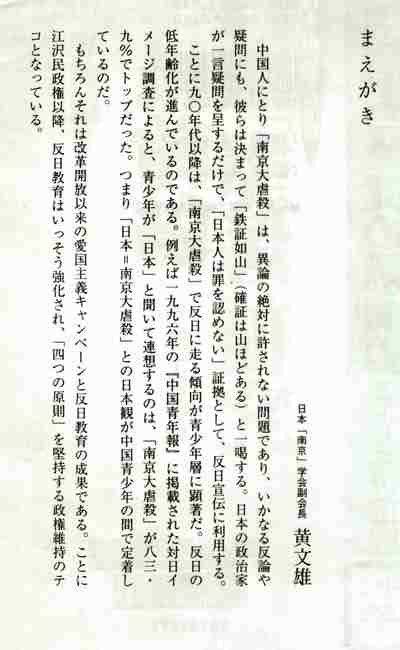 まえがき
日本「南京」学会副会長 黄文雄
中国人にとり「南京大虐殺」は、異論の絶対に許されない問題であり、いかなる反論や
疑問にも、彼らは決まって「鉄証如山」（確証は山ほどある）と一喝する。日本の政治家
が一言疑問を呈するだけで、「日本人は罪を認めない」証拠として、反日宣伝に利用する。
ことに九〇年代以降は、「南京大虐殺」で反日に走る傾向が青少年層に顕著だ。反日の
低年齢化が進んでいるのである。例えば一九九六年の『中国青年報』に掲載された対日イ
メージ調査によると、青少年が「日本」と聞いて連想するのは、「南京大虐殺」が八三・
九％でトップだった。つまり「日本＝南京大虐殺」との日本観が中国青少年の間で定着し
ているのだ。
もちろんそれは改革開放以来の愛国主義キャンペーンと反日教育の成果である。ことに
江沢民政権以降、反日教育はいっそう強化され、「四つの原則」を堅持する政権維持のテ
コとなっている。